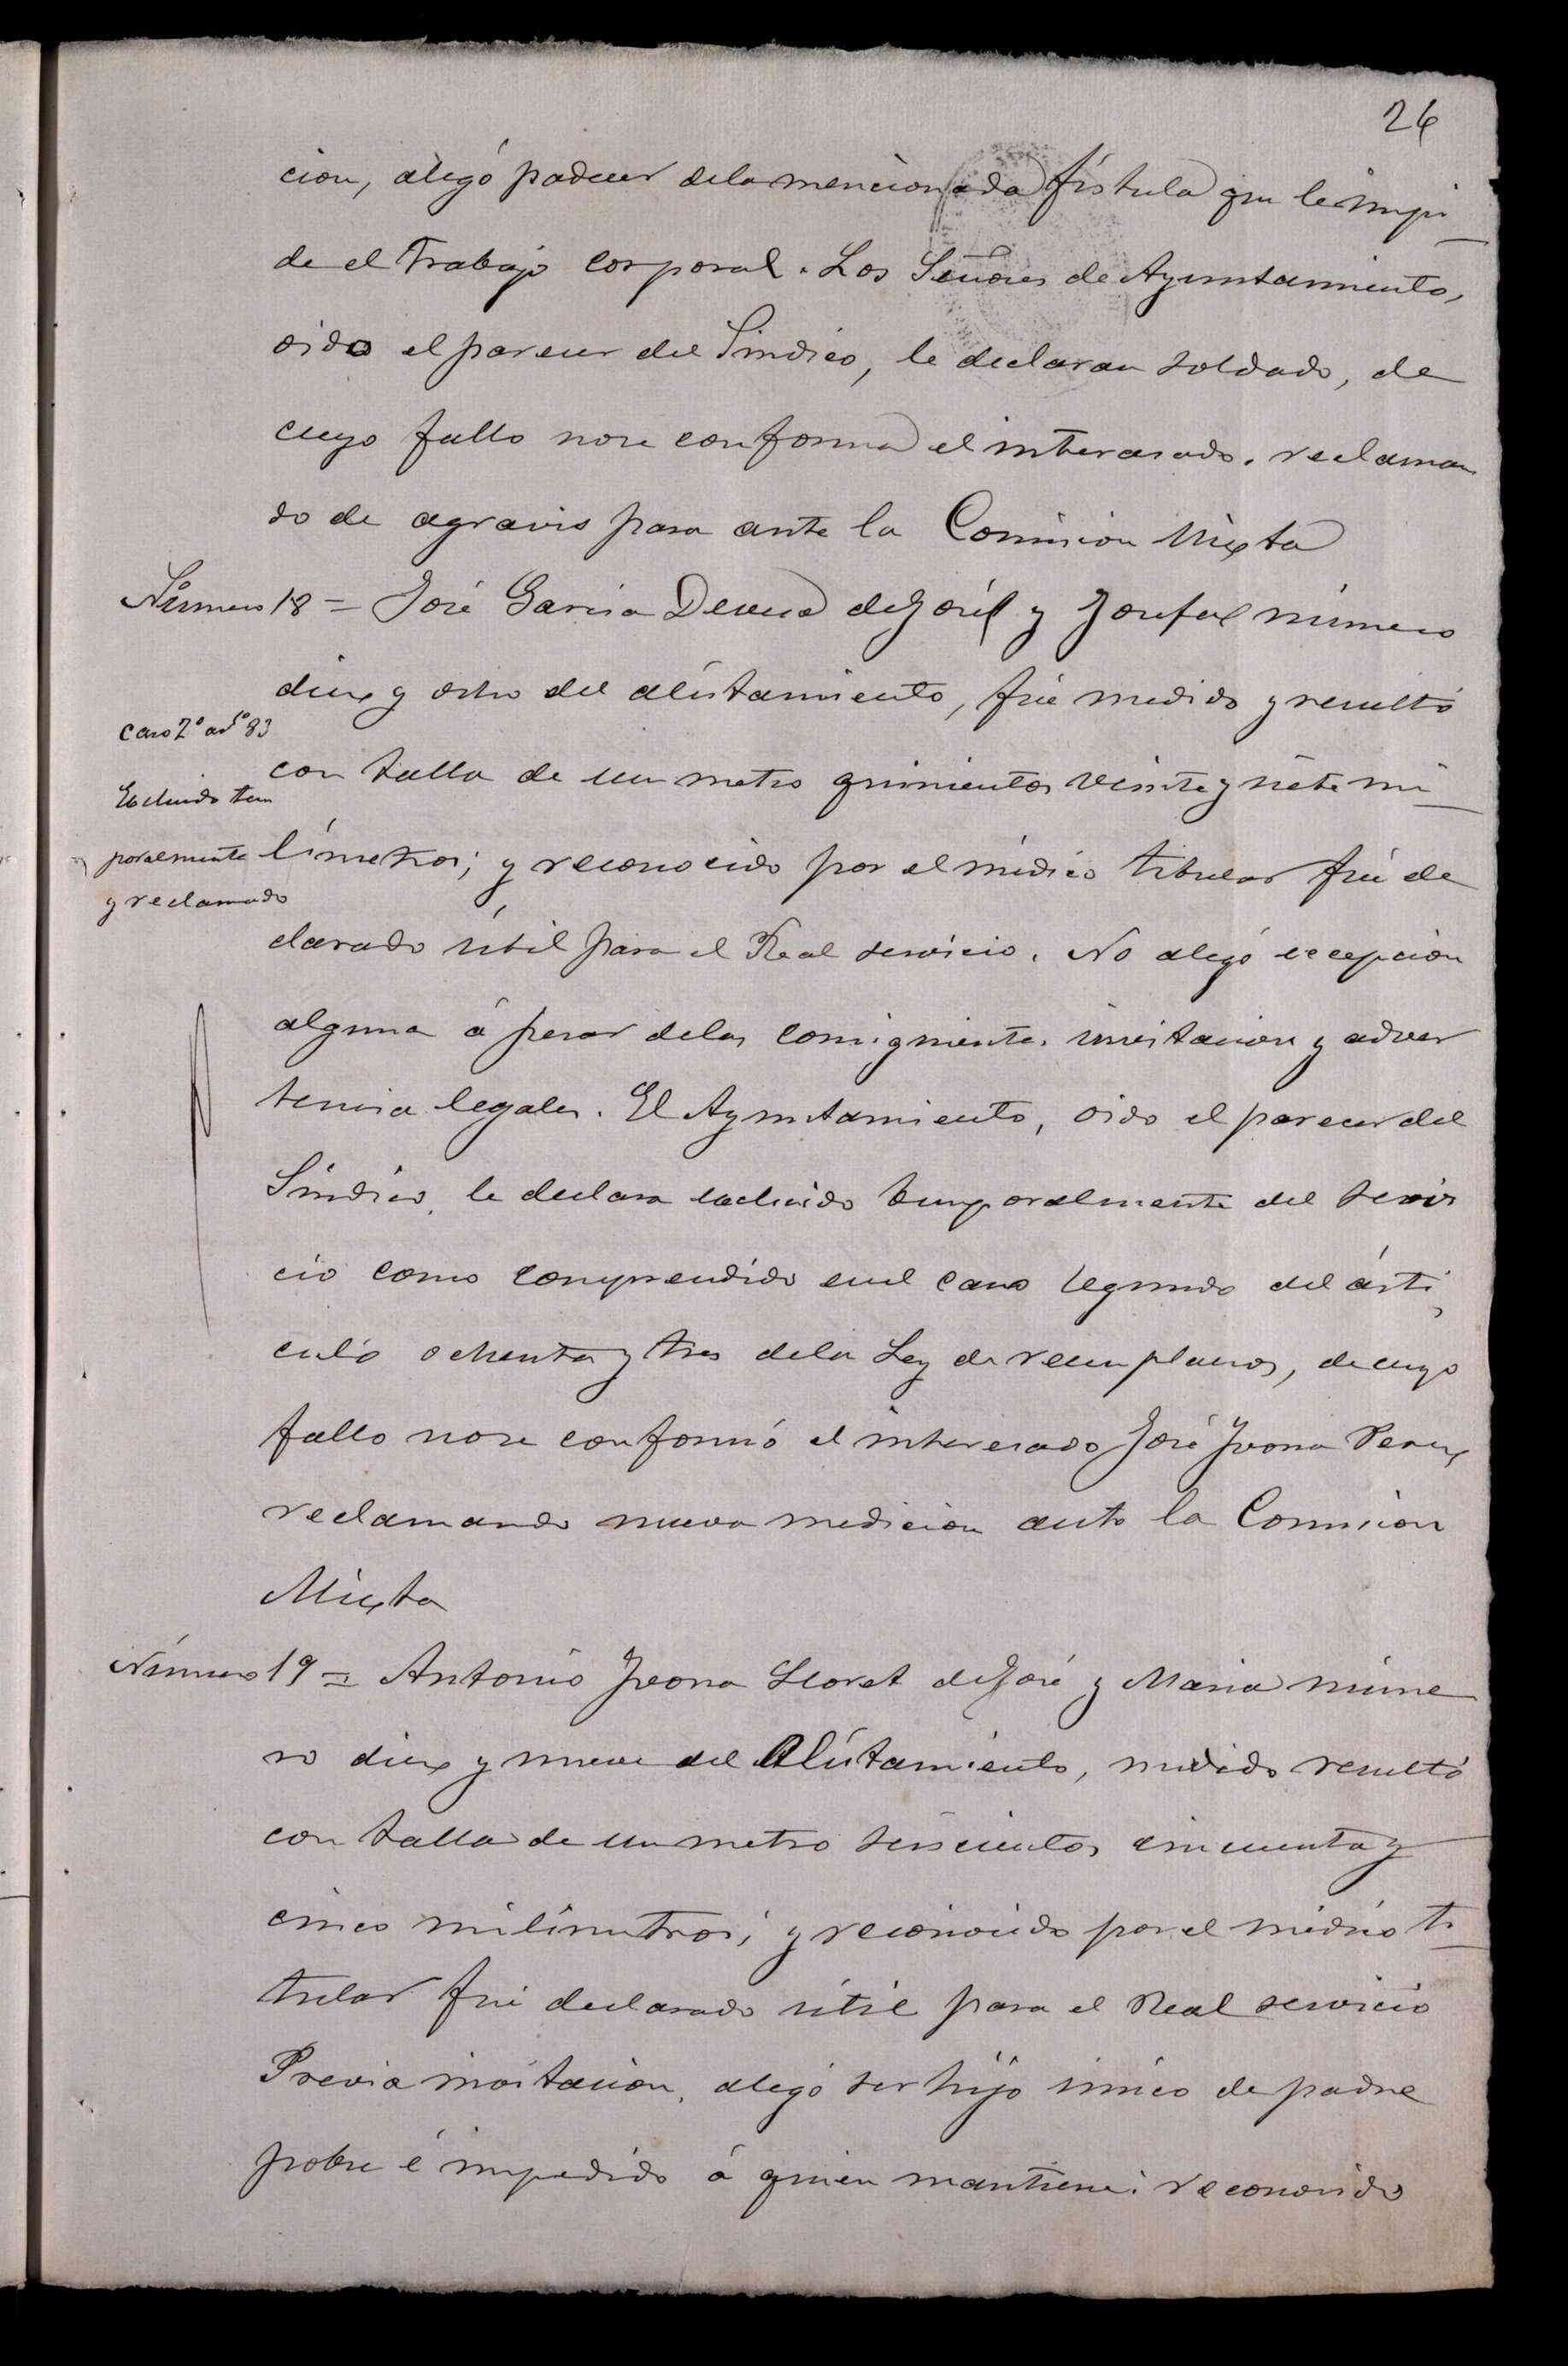 26
cion, alegó padecer dela mencionada fístula que le impi
de el trabajo corporal. Los Señores de Ayuntamiento,
oido el parecer del Sindico, le declaran soldado, de
cuyo fallo nose conforma el interesado, reclaman
do de agravio para ante la Comision Mixta
Número 18 = José Garcia Devesa de José y Josefa número
diez y ocho del alistamiento, fué medido y resultó
caso 2º artº 83
con talla de un metro quinientos veinte y siete mi
Excluido tem
poralmente
límetros; y reconocido por el médico titular fué de
y reclamado
clarado útil para el Real servicio. No alegó excepcion
alguna á pesar delas consiguientes invitacion y adver
tencia legales. El Ayuntamiento, oido el parecer del
Síndico, le declara excluido temporalmente del servi
cio como comprendido enel caso segundo del árti
culo ochenta y tres dela Ley de reemplazos, de cuyo
fallo nose conformó el interesado José Yvorra Perez
reclamando nueva medicion ante la Comision
Mixta
Número 19 = Antonio Yvorra Lloret de José y Maria núme
ro diez y nueve del Alistamiento, medido resultó
con talla de un metro seiscientos cincuenta y
cinco milímetros; y reconocido por el médico ti
tular fué declarado útil para el Real servicio
Previa invitacion, alegó ser hijo único de padre
pobre é impedido á quien mantiene: reconocido